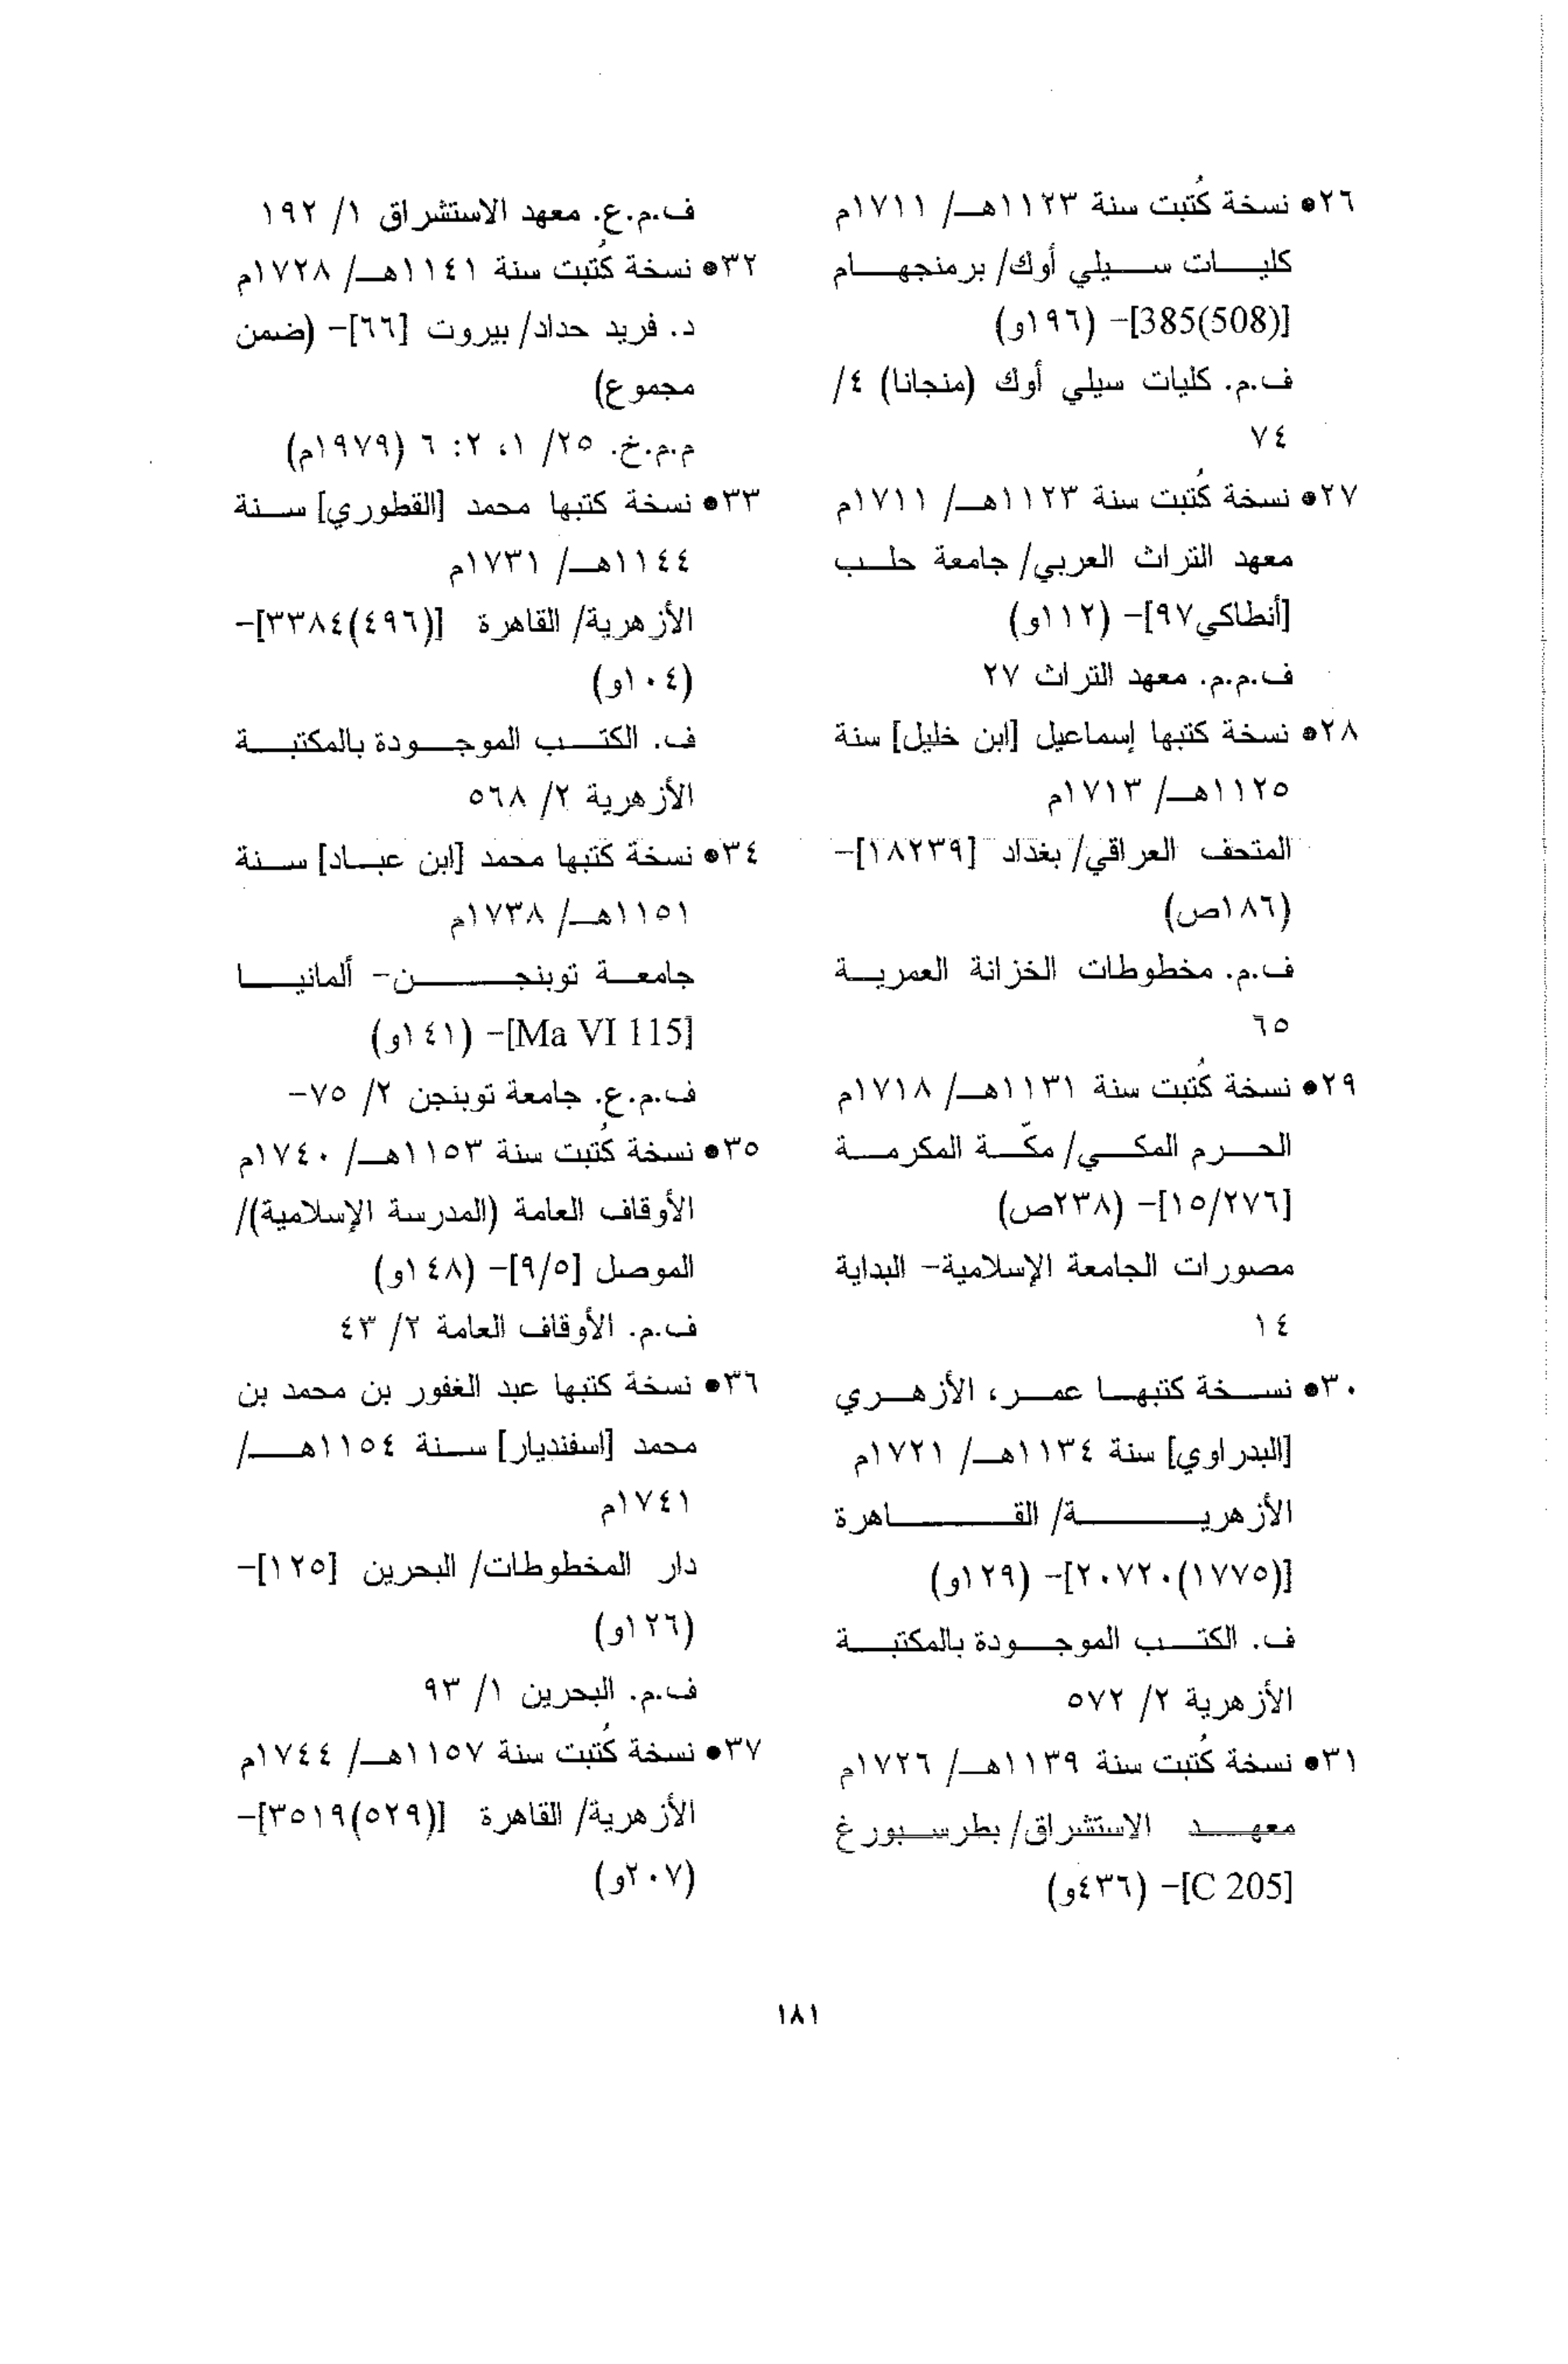 ٢٦• نسخة كُتبت سنة ١١٢٣هـ/ ١٧١١م
كليات سيلي أوك/ برمنجهام
[385(508)]- (١٩٦و)
ف.م. كليات سيلي أوك (منجانا) ٤/
٧٤
٢٧• نسخة كُتبت سنة ١١٢٣هـ/ ١٧١١م
معهد التراث العربي/ جامعة حلب
[أنطاكي٩٧]- (١١٢و)
ف.م.م. معهد التراث ٢٧
٢٨• نسخة كتبها إسماعيل [ابن خليل] سنة
١١٢٥هـ/ ١٧١٣م
المتحف العراقي/ بغداد [١٨٢٣٩]-
(١٨٦ص)
ف.م. مخطوطات الخزانة العمرية
٦٥
٢٩• نسخة كُتبت سنة ١١٣١هـ/ ١٧١٨م
الحرم المكي/ مكّة المكرمة
[١٥/٢٧٦]- (٢٣٨ص)
مصورات الجامعة الإسلامية- البداية
١٤
٣٠• نسخة كتبها عمر، الأزهري
[البدراوي] سنة ١١٣٤هـ/ ١٧٢١م
الأزهرية/ القاهرة
[(١٧٧٥)٢٠٧٢٠]- (١٢٩و)
ف. الكتب الموجودة بالمكتبة
الأزهرية ٢/ ٥٧٢
٣١• نسخة كُتبت سنة ١١٣٩هـ/ ١٧٢٦م
معهد الاستشراق/ بطرسبورغ
[C 205]- (٤٣٦و)
ف.م.ع. معهد الاستشراق ١/ ١٩٢
٣٢• نسخة كُتبت سنة ١١٤١هـ/ ١٧٢٨م
د. فريد حداد/ بيروت [٦٦]- (ضمن
مجموع)
م.م.خ. ٢٥/ ١، ٢: ٦ (١٩٧٩م)
٣٣• نسخة كتبها محمد [القطوري] سنة
١١٤٤هـ/ ١٧٣١م
الأزهرية/ القاهرة [(٤٩٦)٣٣٨٤]-
(١٠٤و)
ف. الكتب الموجودة بالمكتبة
الأزهرية ٢/ ٥٦٨
٣٤• نسخة كتبها محمد [ابن عباد] سنة
١١٥١هـ/ ١٧٣٨م
جامعة توبنجن- ألمانيا
[Ma VI 115]- (١٤١و)
ف.م.ع. جامعة توبنجن ٢/ ٧٥-
٣٥• نسخة كُتبت سنة ١١٥٣هـ/ ١٧٤٠م
الأوقاف العامة (المدرسة الإسلامية)/
الموصل [٩/٥]- (١٤٨و)
ف.م. الأوقاف العامة ٢/ ٤٣
٣٦• نسخة كتبها عبد الغفور بن محمد بن
محمد [اسفنديار] سنة ١١٥٤هـ/
١٧٤١م
دار المخطوطات/ البحرين [١٢٥]-
(١٢٦و)
ف.م. البحرين ١/ ٩٣
٣٧• نسخة كُتبت سنة ١١٥٧هـ/ ١٧٤٤م
الأزهرية/ القاهرة [(٥٢٩)٣٥١٩]-
(٢٠٧و)
١٨١